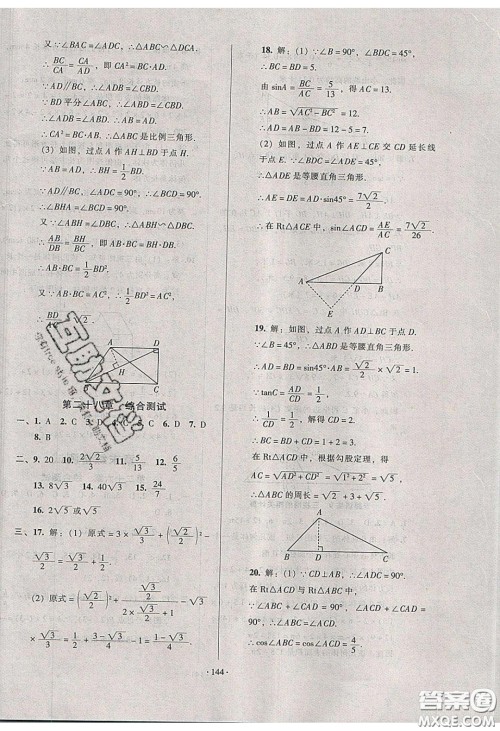 又∵∠BAC=∠ACD，∴△ABC∽△DCA.
∴BC/CA=CA/AD，即 CA²=BC·AD.
∵AD∥BC，∴∠ADB=∠CBD.
∵BD 平分∠ABC，∴∠ABD=∠CBD.
∴∠ADB=∠ABD，∴AB=AD.
∴CA²=BC·AB，∴△ABC 是比例三角形.
(3) 如图，过点 A 作 AH⊥BD 于点 H.
∵AB=AD，∴BH=1/2BD.
∵AD∥BC，∠ADC=90°，∴∠BCD=90°.
∴∠BHA=∠BCD=90°.
又∵∠ABH=∠DBC，∴△ABH∽△DBC.
∴AB/DB=BH/BC，即 AB·BC=BH·DB.
∴AB·BC=1/2BD².
又∵AB·BC=AC²，∴1/2BD²=AC²，
∴BD
A
D
H
B
C
综合测试
一、1. A 2. C 3. D 6. D 7. D
8. B
二、9. 20 10. 2√3/3 11. 5/13 12. 6/5
13. 8√3 14. 40√3 15. 24/7
16. 2√5 或√5
三、17. 解：(1) 原式=3×√3/3+(√2/2)²-
√3/2×√3/2=√3+1/2-3/4=√3-1/4.
(2) 原式=(√2/2)²+
×√3/2=1/2+(3-√3)/4-√3/4=1-√3/2.
18. 解：(1) ∵∠B=90°，∠BDC=45°，
∴BC=BD=5.
由 sinA=BC/AC=5/13，得 AC=13.
∴AB=√(AC²-BC²)=12.
∴AD=AB-BD=12-5=7.
(2) 如图，过点 A 作 AE⊥CE 交 CD 延长线
于点 E. ∵∠ADE=∠BDC=45°，
∴△ADE 是等腰直角三角形.
∴AE=DE=AD·sin45°=7√2/2.
∴在 Rt△ACE 中，sin∠ACD=AE/AC=7√2/26.
C
A
D
B
E
19. 解：如图，过点 A 作 AD⊥BC 于点 D.
∵∠B=45°，∴△ABD 是等腰直角三角形.
∴AD=BD=AB·sin45°=√2×√2/2=1.
∵tanC=AD/CD=1/2，∴CD=2.
∴BC=BD+CD=1+2=3.
在 Rt△ACD 中，根据勾股定理，得
AC=√(AD²+CD²)=√(1²+2²)=√5.
∴△ABC 的周长=√2+√5+3.
A
B
D
C
20. 解：(1) ∵CD⊥AB，∴∠ADC=90°.
在 Rt△ACD 与 Rt△ABC 中，
∵∠ABC+∠CAD=90°，∠ACD+∠CAD=
90°，∴∠ABC=∠ACD.
∴cos∠ABC=cos∠ACD=4/5.
·144·
答案圈
MXQE.COM